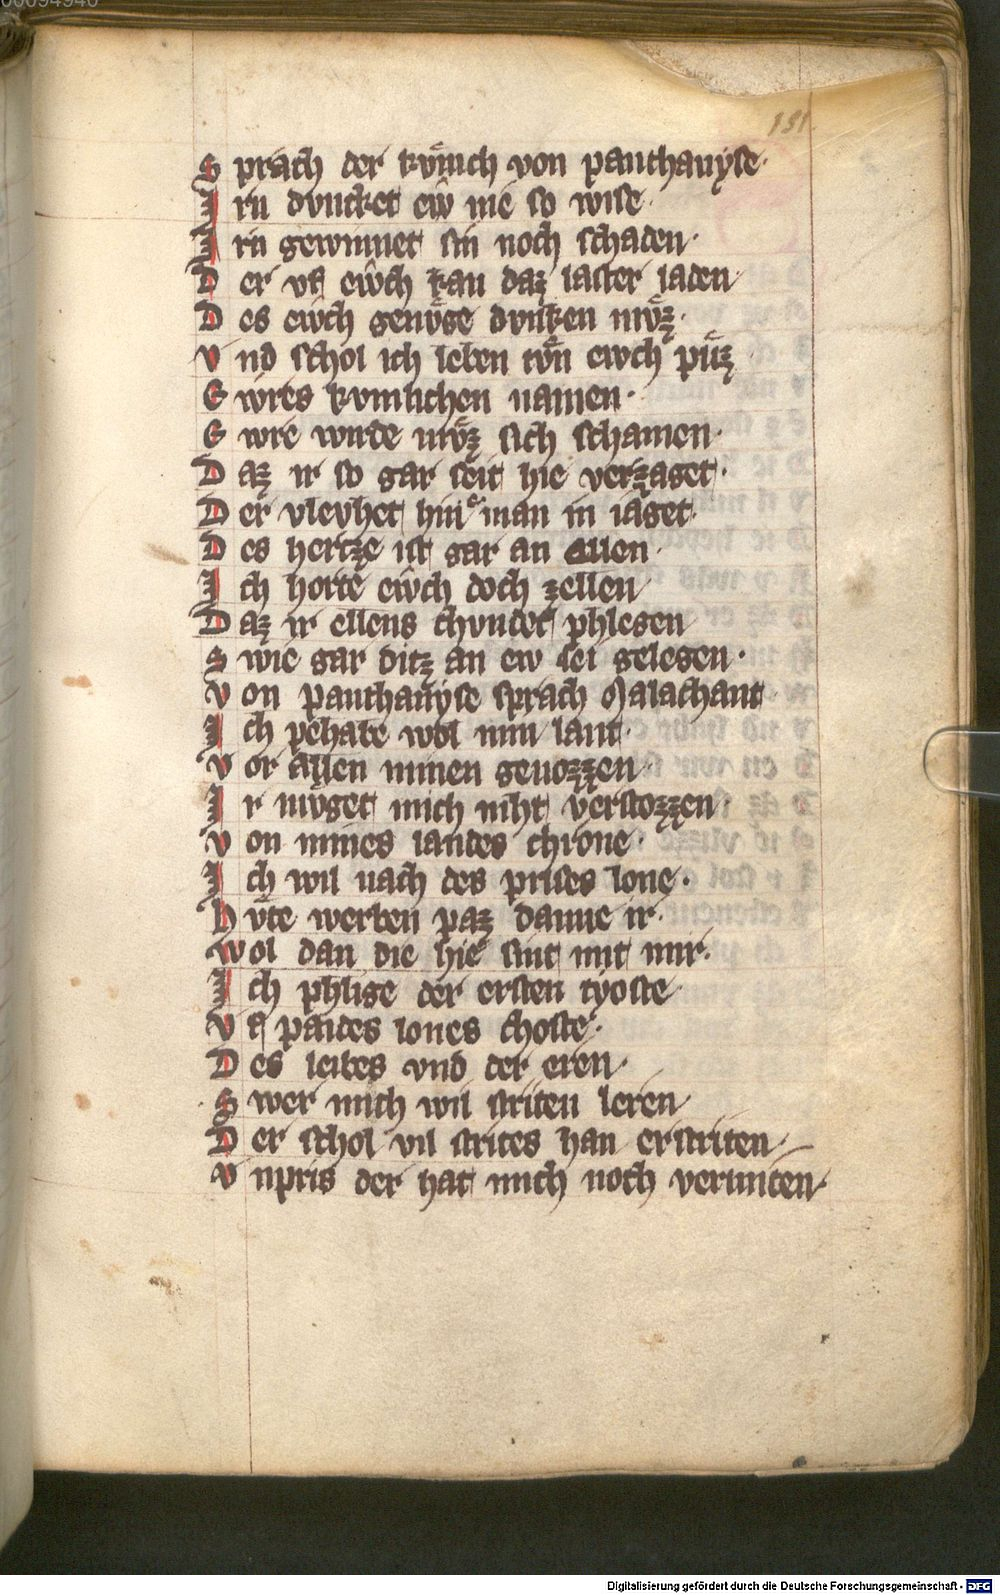 131
S prach der kv̊nich von panthauyse·
I rn dvncket ew nie so wise·
I rn gewinnet sin noch schaden·
D er vf ewch kan daz laster laden
D es ewch genv̊ge dvnken mv̊z·
V nd schol ich leben tv̊n ewch pu̇z
E wres kvnnichen namen·
E wre wirde mv̊z sich schamen·
D az ir so gar seit hie verzaget·
D er vleuhet hin man in iaget·
D es hertze ist gar an ellen·
I ch horte ewch doch zellen
D az ir ellens chvndet phlegen
S wie gar ditz an ew sei gelegen·
V on panthauyse sprach Malachant
I ch pehabe wol min lant·
V or allen minen genozzen·
I r mvget mich niht verstozzen·
V on mines landes chrone·
I ch wil nach des prises lone·
H v̊te werben paz danne ir·
W ol dan die hie sint mit mir·
I ch phlige der ersten tyoste
V f paides lones choste·
D es leibes vnd der eren·
S wer mich wil striten leren
D er schol vil strites han erstriten·
V npris der hat mich noch vermiten·
Digitalisierung gefördert durch die Deutsche Forschungsgemeinschaft - DFG